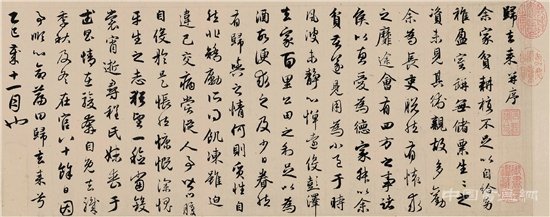 歸去來并序
余家貧耕植不足以自給幼
稚盈室缾無儲粟生生所
資未見其術親故多勸
余為長吏脫然有懷求
之靡途會有四方之事諸
侯以惠愛為德家叔以余
貧苦遂見用為小邑于時
風波未靜心憚遠役彭澤
去家百里公田之利足以為
酒故便求之及少日眷然
有歸歟之情何則質性自
然非矯勵所得飢凍雖迫
違己交病嘗從人事皆口腹
自役於是悵然慷慨深愧
平生之志猶望一稔當斂
裳宵逝尋程氏妹喪于
武昌情在駿奔自免去職
季秋及冬在官八十餘日因
事順心命篇曰歸去來兮
乙巳歲十一月也